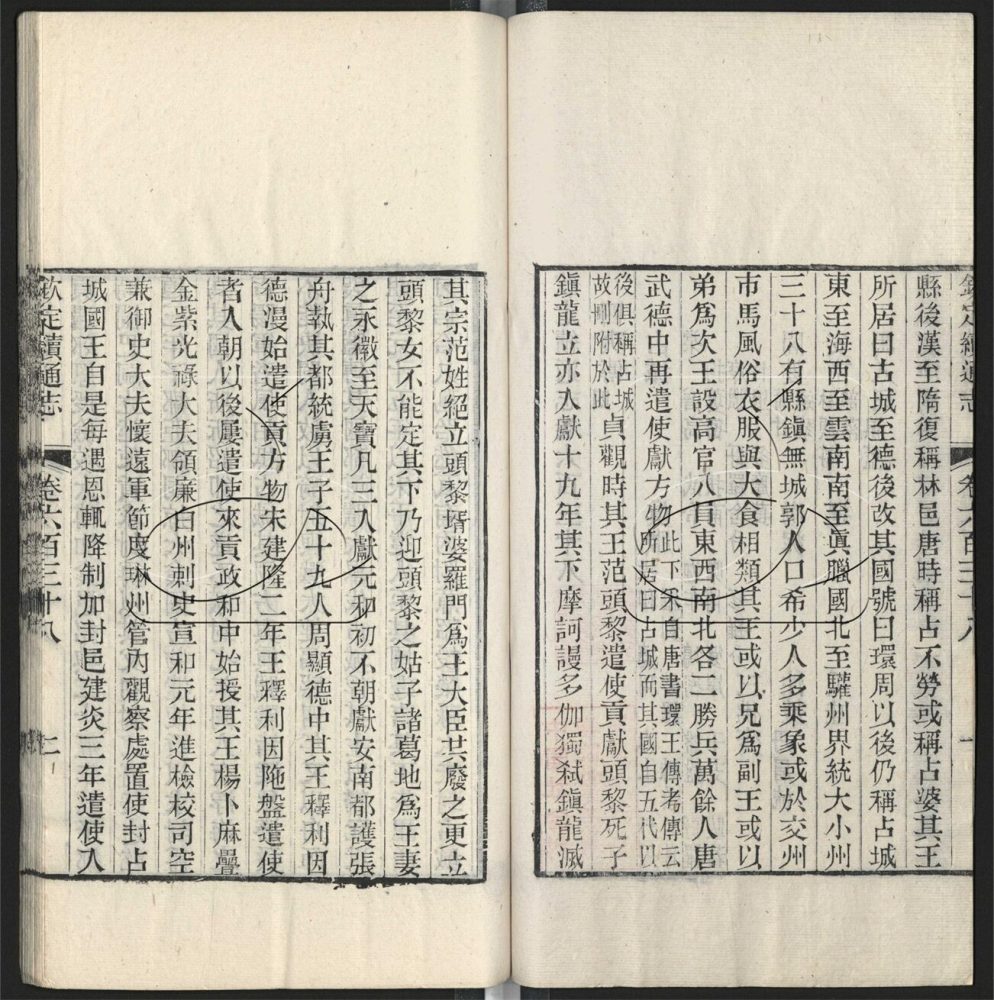 欽定續通志 卷六百三十八 一
縣後漢至隋復稱林邑唐時稱占不勞或稱占婆其王
所居曰占城至德後改其國號曰環周以後仍稱占城
東至海西至雲南南至真臘國北至驩州界統大小州
三十八有縣鎮無城郭人口希少人多乘象或於交州
市馬風俗衣服與大食相類其王或以兄爲副王或以
弟爲次王設高官八員東西南北各二勝兵萬餘人唐
武德中再遣使獻方物此下采自唐書環王傳考傳云
所居曰占城而其國自五代以
後俱稱占城
故刪附於此貞觀時其王范頭黎遣使貢獻頭黎死子
鎮龍立亦入獻十九年其下摩訶謾多伽獨弑鎮龍滅
其宗范姓絕立頭黎壻婆羅門爲王大臣共廢之更立
頭黎女不能定其下乃迎頭黎之姑子諸葛地爲王妻
之永徽至天寶凡三入獻元和初不朝獻安南都護張
舟執其都統虜王子五十九人周顯德中其王釋利因
德漫始遣使貢方物宋建隆二年王釋利因陁盤遣使
者入朝以後屢遣使來貢政和中始授其王楊卜麻疊
金紫光祿大夫領廉白州刺史宣和元年進檢校司空
兼御史大夫懷遠軍節度琳州管內觀察處置使封占
城國王自是每遇恩輒降制加封邑建炎三年遣使入
欽定續通志 卷六百三十八 一